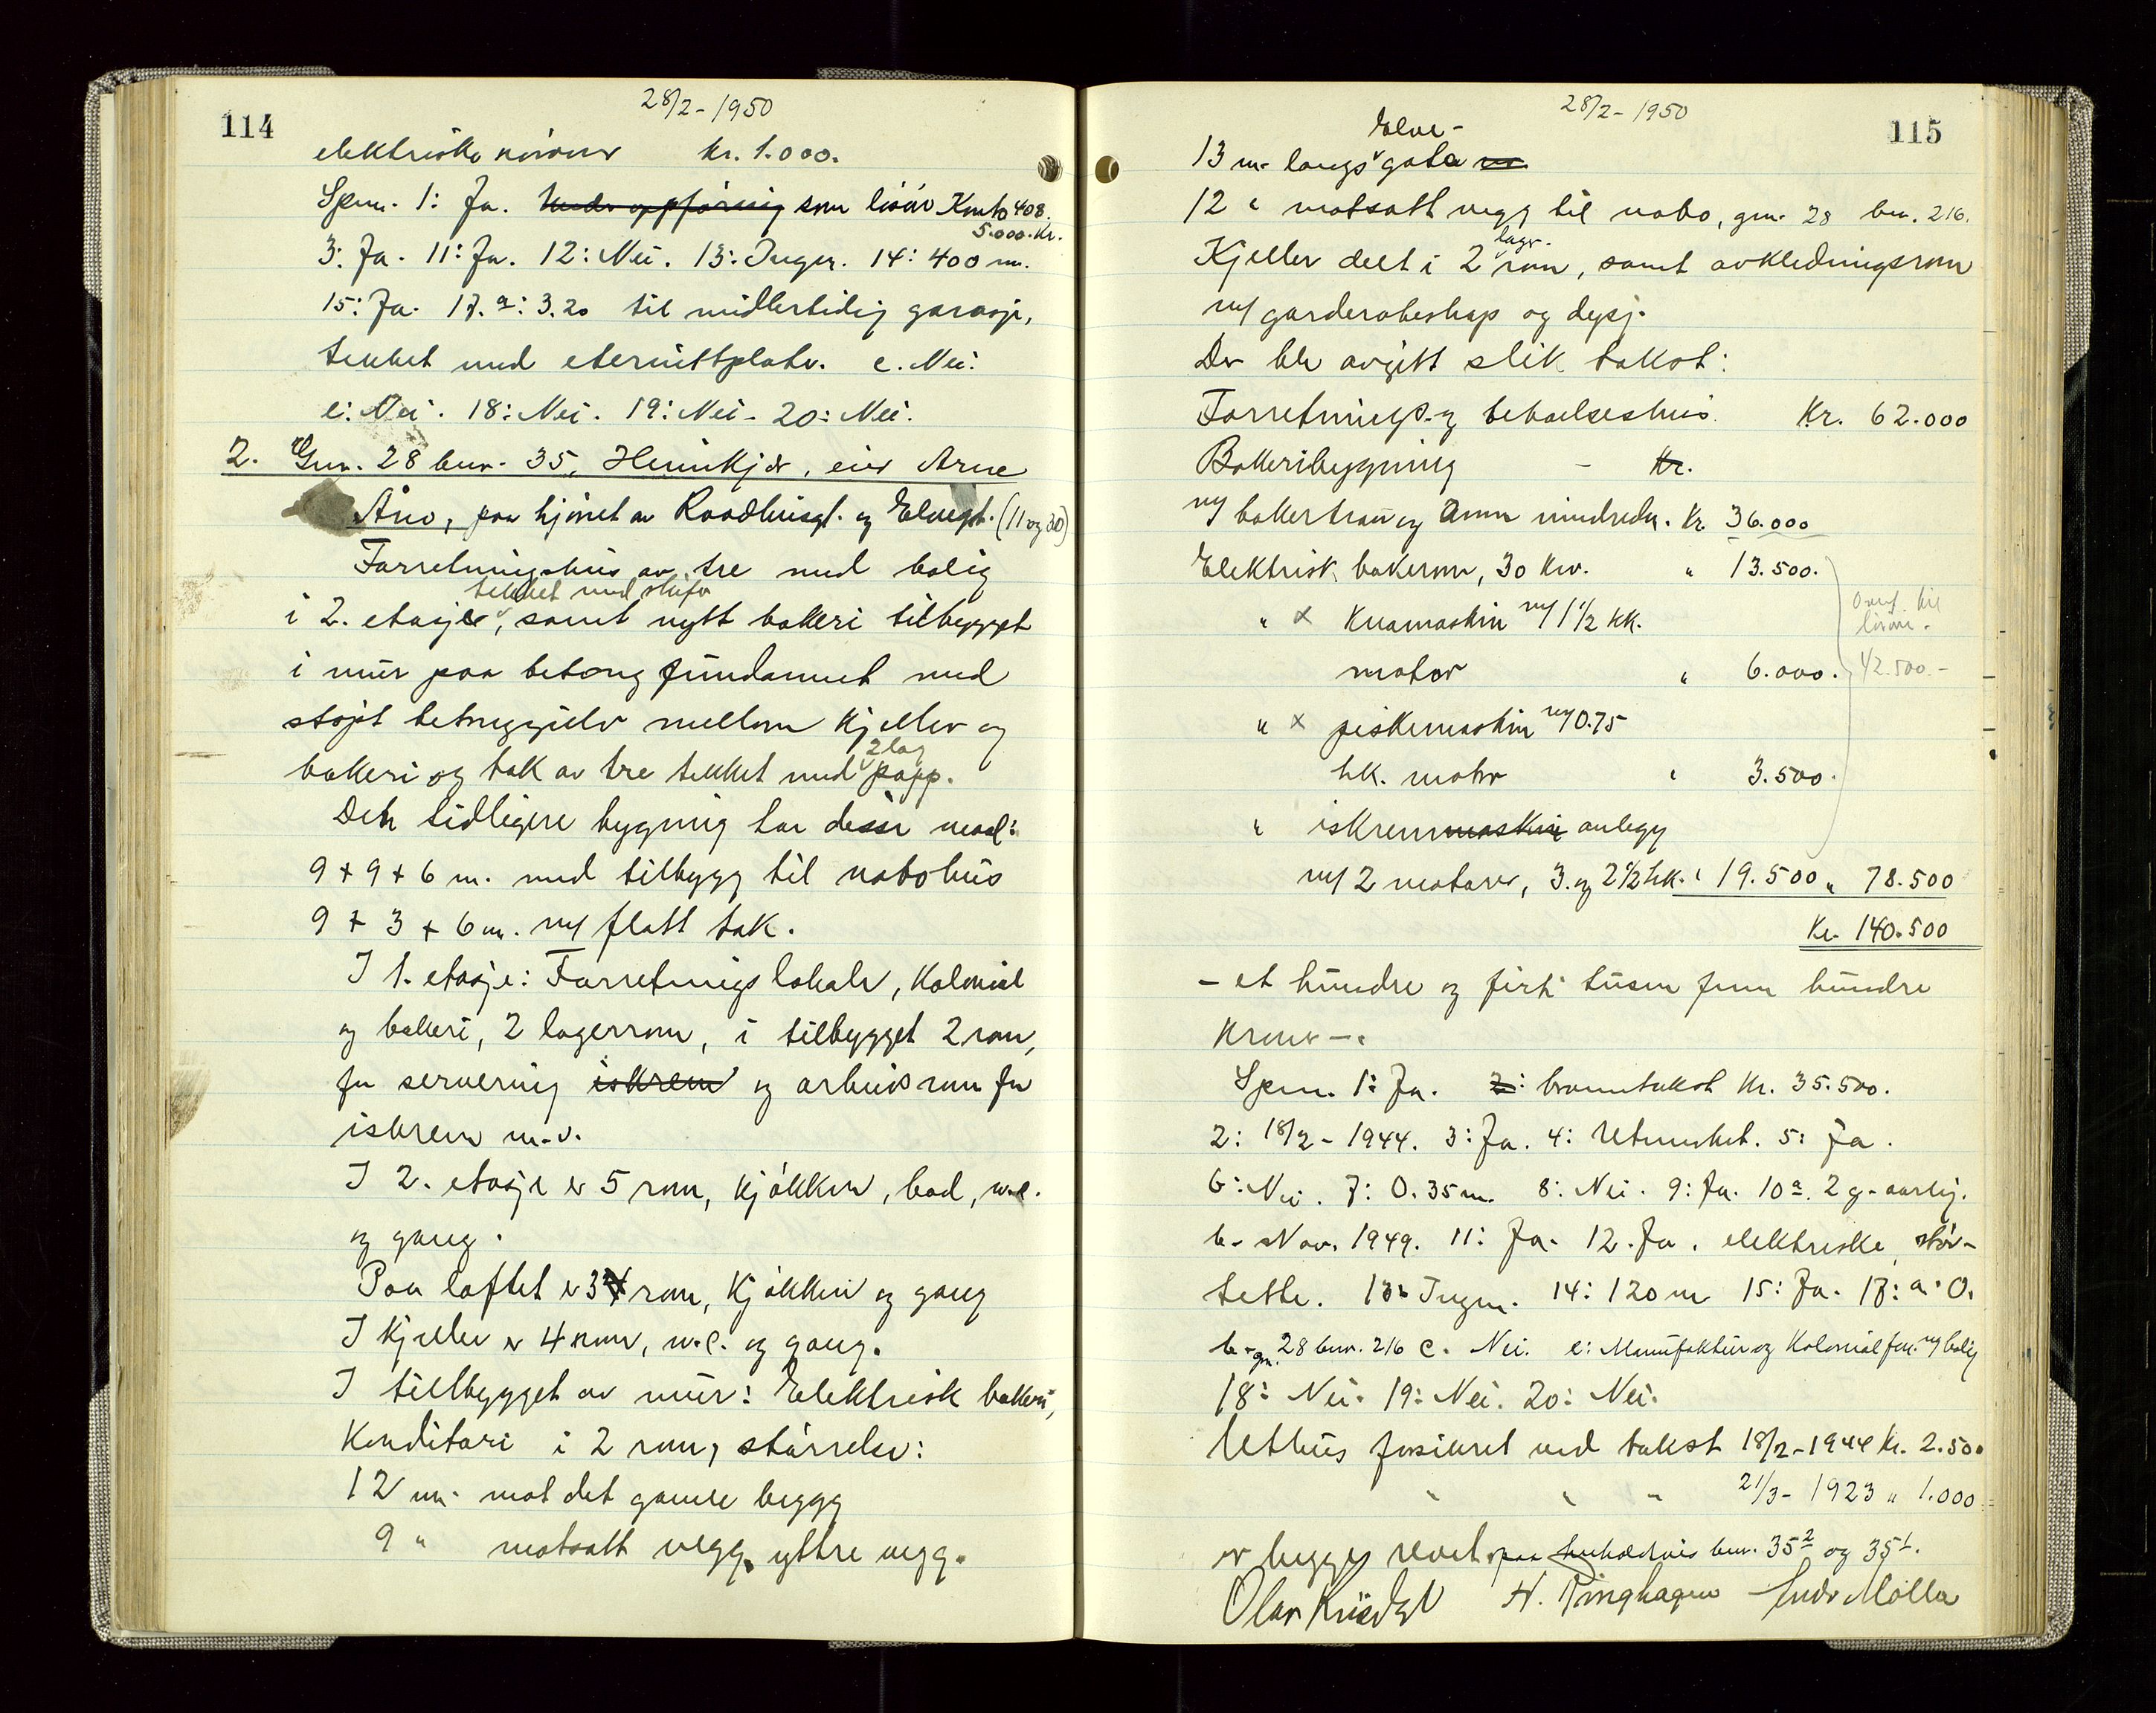 114
28/2 - 1950
elektriske kr. 1.000.
Spm. 1: Ja. Under oppføring som løsøre Konto 408.
5.000. Kr.
3: Ja. 11: Ja. 12: Nei. 13: Ingen. 14: 400 m.
15: Ja. 17. a: 3.20 til midlertidig garasje,
tekket med eternittplater. c. Nei.
e: Nei. 18: Nei. 19: Nei. 20: Nei.
2. Gnr. 28 bnr. 35, eier Arne
paa hjörnet av Raadhusgt. og Elvegt. (11 og 30)
Forretningshus av tre med bolig
tekket med skifer
i 2. etasje, samt nytt bakeri tilbygget
i mur paa betong fundament med
støpt betonggulv mellom kjeller og
2 lag
bakeri og tak av tre tekket med papp.
Den tidligere bygning har disse maal:
9 + 9 + 6 m. med tilbygg til nabohus
9 + 3 + 6 m. m/ flatt tak.
I 1. etasje: Forretningslokale, Kolonial
og bakeri, 2 lagerrom, i tilbygget 2 rom,
for servering iskrem og arbeidsrom for
iskrem m.v.
I 2. etasje er 5 rom, kjökken, bad, w.c.
og gang.
Paa loftet er 3 rom, kjökken og gang
I kjeller er 4 rom, w.c. og gang.
I tilbygget av mur: Elektrisk bakeri,
Konditori i 2 rom, störrelse:
12 m. mot det gamle bygg
9 " motsatt vegg, yttre vegg.
28/2 - 1950
115
Elve-
13 m. langs gata
12 " motsatt vegg til nabo, gnr. 28 bnr. 216.
lager-
Kjeller delt i 2 rom, samt avkledningsrom
m/ garderobeskap og dusj.
Der ble avgitt slik takst:
Forretnings- og beboelseshus. Kr. 62.000
Bakeribygning - Kr.
m/ bakertrau og annen innredn. Kr. 36.000
Elektrisk bakerovn, 30 Kw. " 13.500.
" x Knamaskin m/ 1 1/2 HK.
motor " 6.000.
Overf. til
løsøre.
42.500 -
" x piskemaskin m/ 0.75
hk. motor " 3.500.
" iskremmaskin anlegg
m/ 2 motorer, 3. og 2 1/2 hk. " 19.500 " 78.500
Kr. 140.500
- et hundre og firti tusen fem hundre
Kroner -.
Spm. 1: Ja. 2: branntakst Kr. 35.500.
2: 18/2 - 1944. 3: Ja. 4: Utmerket. 5: Ja.
6: Nei. 7: 0.35 m. 8: Nei. 9: Ja. 10 a. 2 g. aarlig.
b. Nov. 1949. 11: Ja. 12. Ja, elektriske, stöv-
tette. 13: Ingen. 14: 120 m 15: Ja. 17: a: 0.
b. gnr. 28 bnr. 216 c. Nei. e: Manufaktur og Kolonialforr. m/ bolig
18: Nei. 19: Nei. 20: Nei.
Uthus forsikret ved takst 18/2 - 1944 Kr. 2.500
" " " 21/3 - 1923 " 1.000 =
er begge revet, paa henholdsvis bnr. 35² og 35¹.
H. Ringhagen Møller